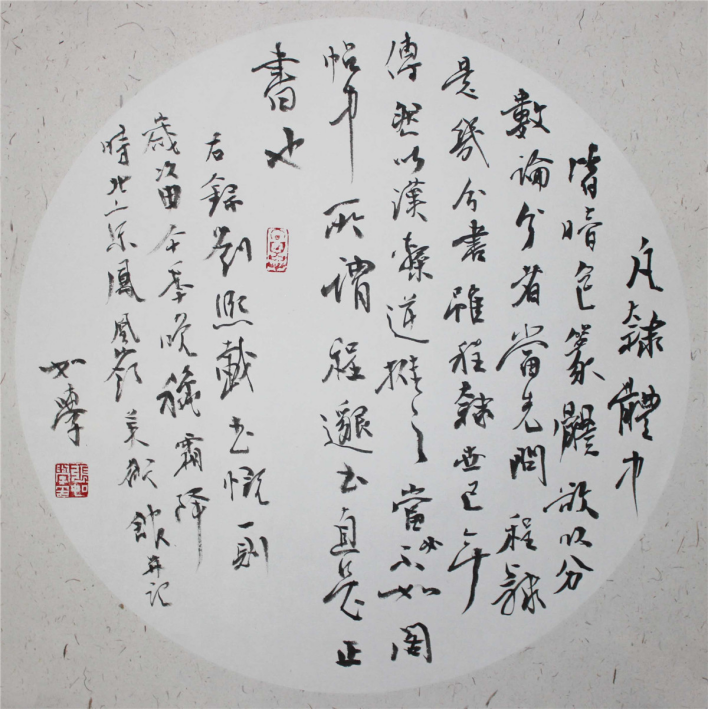 凡隸體中
皆暗包篆體欲以分
數論分者當先問程隸
是幾分書雖程隸世已無
傳然以漢隸逆推之當必不如閣
帖中所謂程邈書直是正
書也
右錄劉熙載書概一則
歲次甲午年晚穐霜降
時北京鳳凰嶺美并記
如學